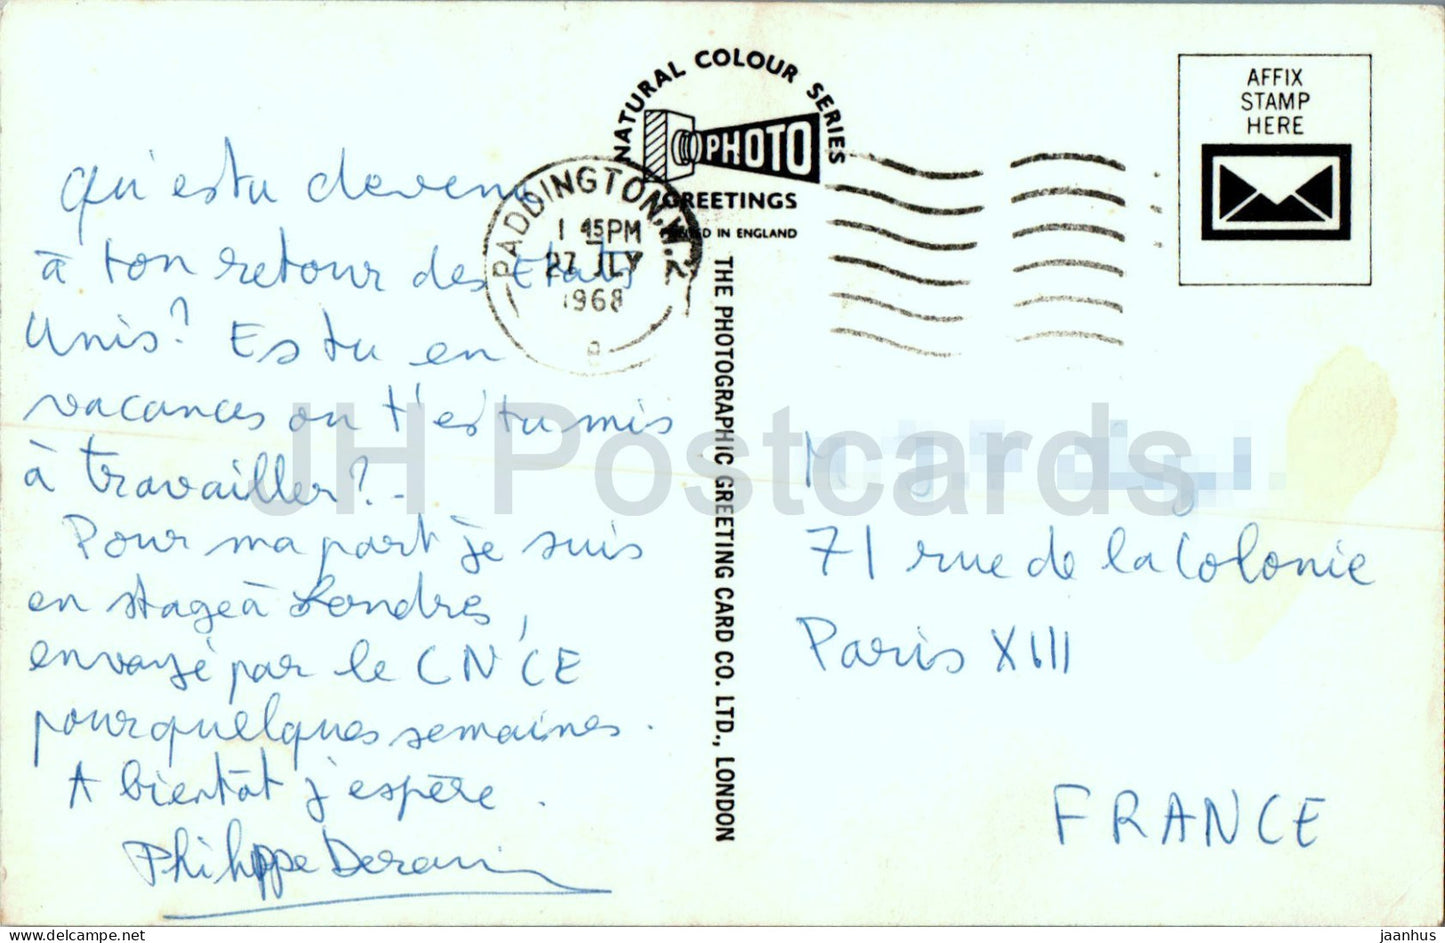 NATURAL COLOUR SERIES
PHOTO
GREETINGS
PRINTED IN ENGLAND
AFFIX
STAMP
HERE
PADDINGTON. W.2
1 45PM
27 JLY
1968
Qu'es tu devenu
à ton retour des Etats
Unis? Es tu en
vacances ou t'es tu mis
à travailler? -
Pour ma part je suis
en stage à Londres,
envoyé par le CNCE
pour quelques semaines.
A bientôt j'espère.
Philippe
THE PHOTOGRAPHIC GREETING CARD CO. LTD., LONDON
M.
71 rue de la Colonie
Paris XIII
FRANCE
JH Postcards
https://www.delcampe.net
jaanhus